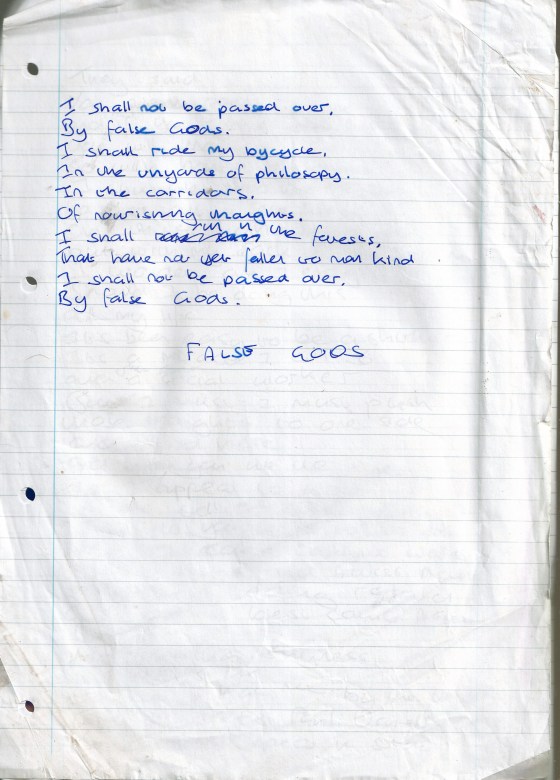 I shall not be passed over,
By false Gods.
I shall ride my bycycle,
In the vinyards of philosopy.
In the corridors,
Of nourishing thoughts.
I shall run in the forests,
That have not yet fallen to man kind.
I shall not be passed over,
By false Gods.
FALSE GODS